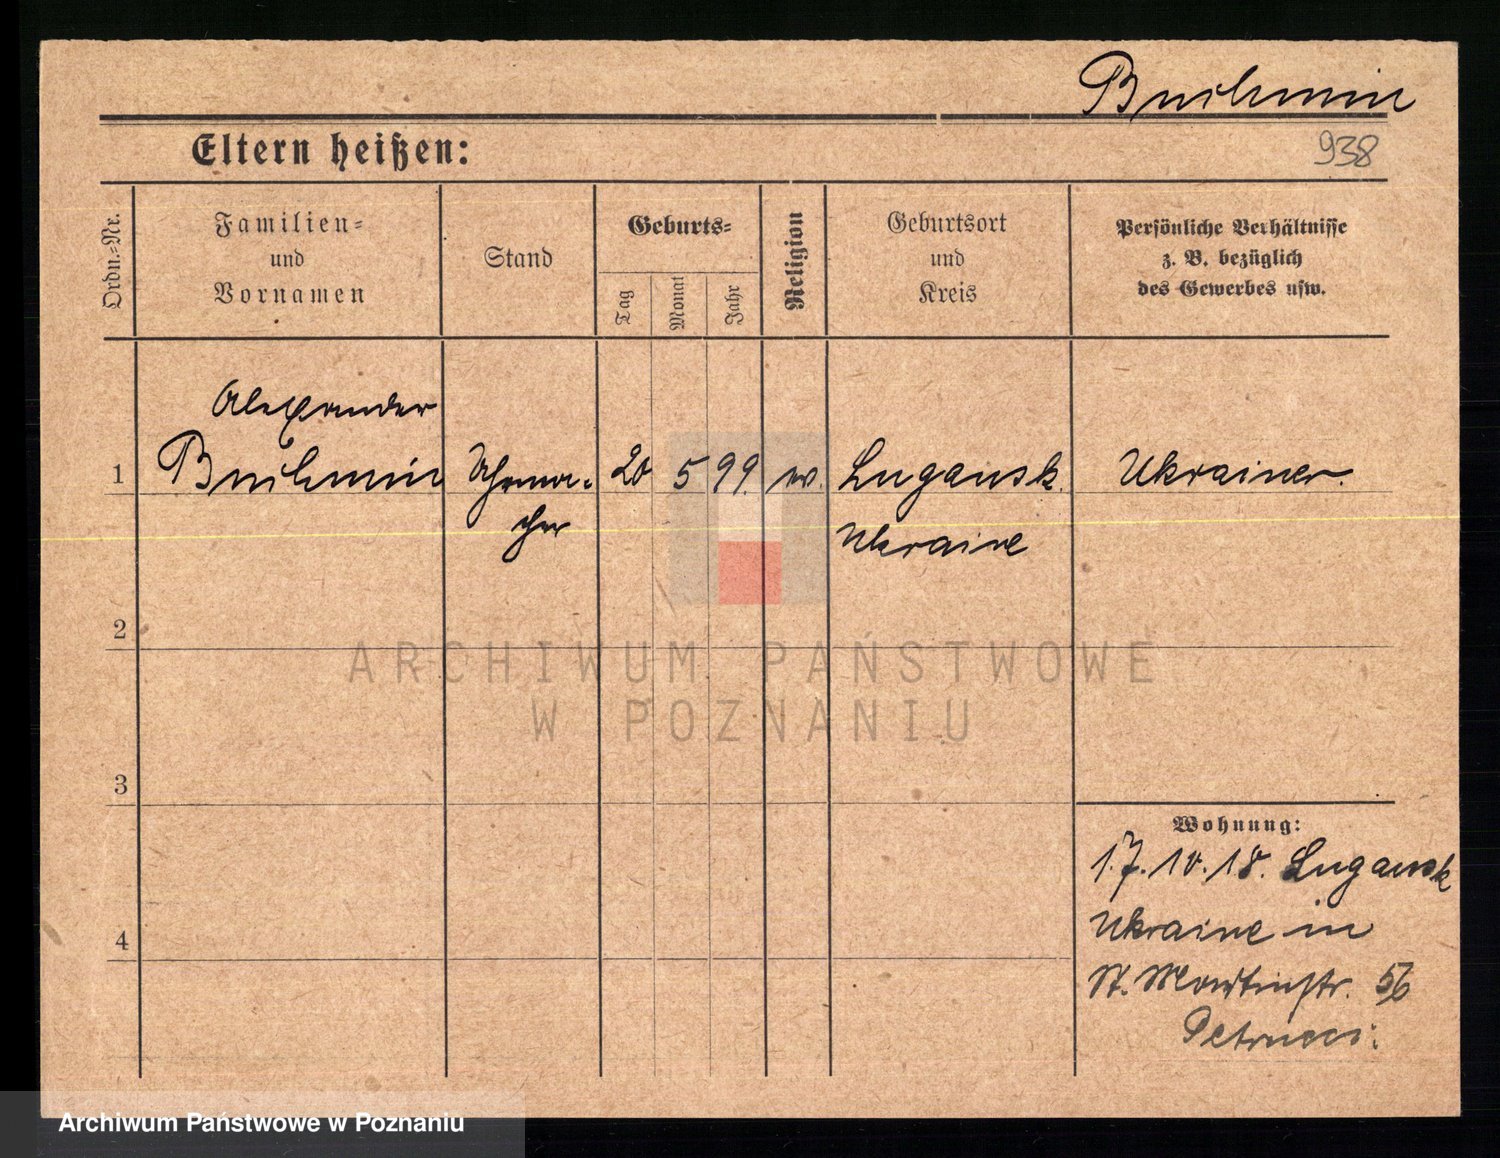 Buchmin
938
Eltern heißen:
Ordn.-Nr.
Familien-
und
Vornamen
Stand
Geburts-
Tag
Monat
Jahr
Religion
Geburtsort
und
Kreis
Persönliche Verhältnisse
z. B. bezüglich
des Gewerbes usw.
Alexander
1 Buchmin Uhrma- 20 5 99. Lugansk. Ukrainer.
cher Ukraine
2
3
4
ARCHIWUM PAŃSTWOWE
W POZNANIU
Wohnung:
17.10.18. Lugansk
Ukraine in
St. Martinstr. 56
Petrucci:
Archiwum Państwowe w Poznaniu